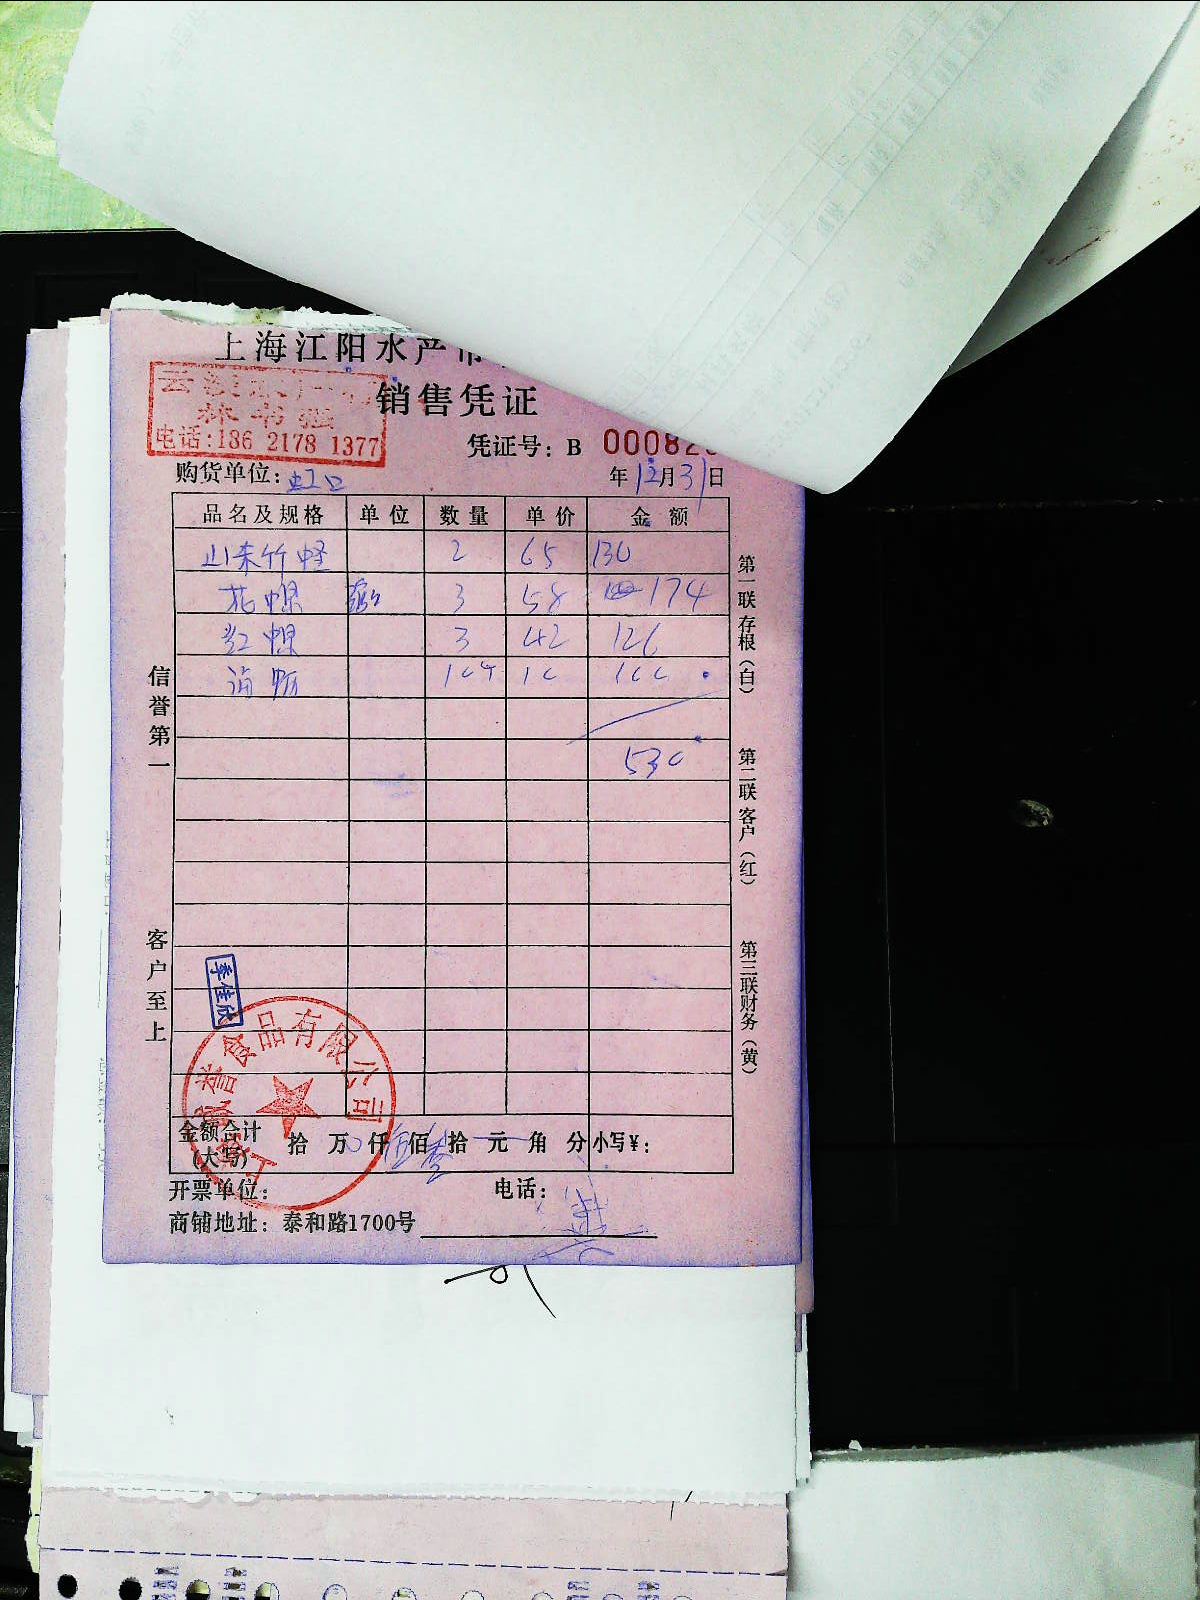 上海江阳水产市
销售凭证
电话:136 2178 1377
凭证号: B 00082
购货单位: 虹口 年 12月31日
品名及规格 单位 数量 单价 金额
山东竹蛏 2 65 130
花螺 3 58 174
红螺 3 42 126
海蛎 10 100
530
信誉第一
客户至上
第一联存根(白)
第二联客户(红)
第三联财务(黄)
季佳欣
誉食品有限公司
金额合计(大写) 拾 万 仟 佰 拾 元 角 分 小写¥:
开票单位: 电话:
商铺地址: 泰和路1700号